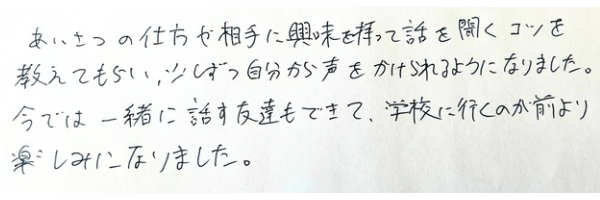 あいさつの仕方や相手に興味を持って話を聞くコツを
教えてもらい、少しずつ自分から声をかけられるようになりました。
今では一緒に話す友達もできて、学校に行くのが前より
楽しみになりました。